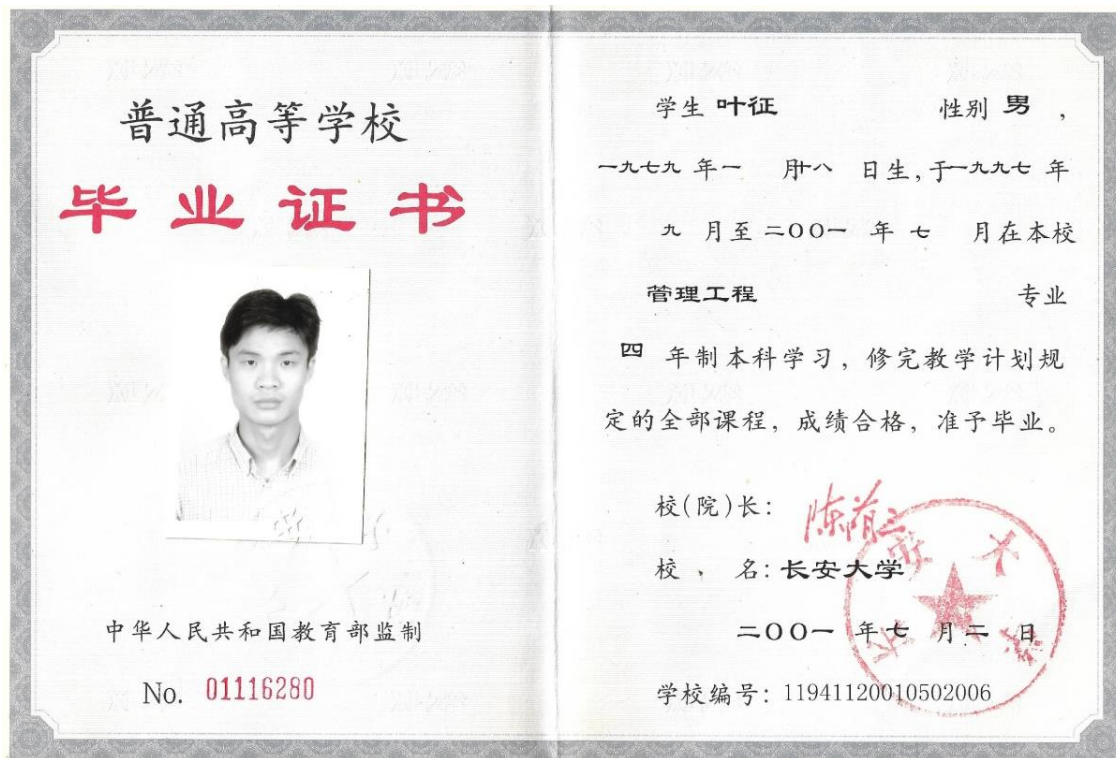 普通高等学校
毕业证书
中华人民共和国教育部监制
No. 01116280
学生 叶征 性别 男 ，
一九七九 年 一 月十八 日生，于一九九七 年
九 月至 二〇〇一 年 七 月在本校
管理工程 专业
四 年制本科学习，修完教学计划规
定的全部课程，成绩合格，准予毕业。
校(院)长：
校 名：长安大学
二〇〇一 年 七 月 二 日
学校编号：11941120010502006
长安大学